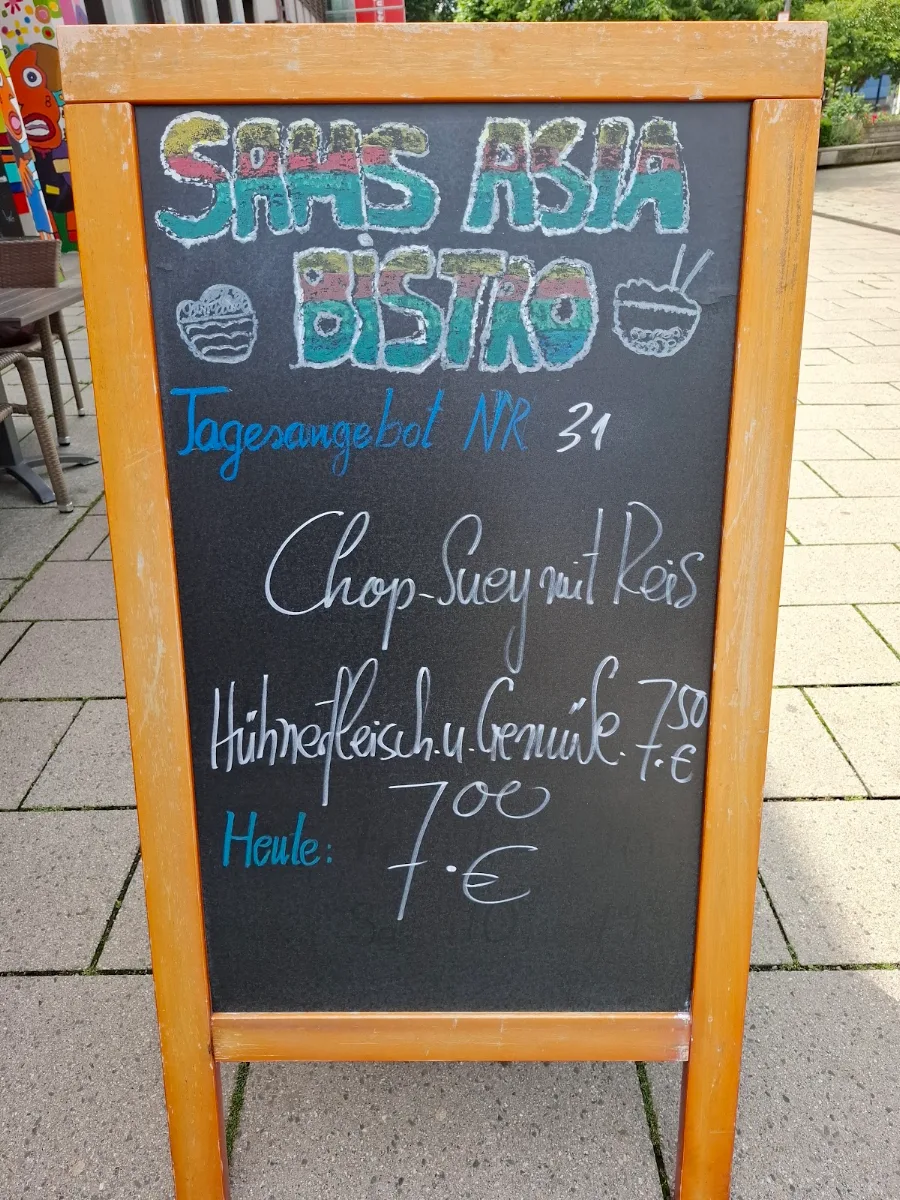 SAMS ASIA
BISTRO
Tagesangebot NR 31
Chop-Suey mit Reis
Hühnerfleisch.u.Gemüse. 7,50 €
Heute: 7,00 €